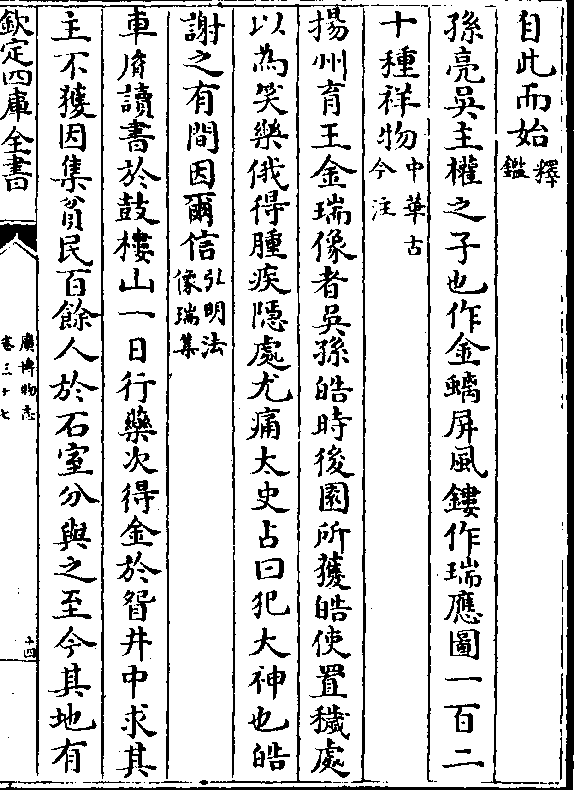 自此而始釋鑑
孫亮吳主權之子也作金螭屏風鏤作瑞應圖一百二
十種祥物中華古今注
揚州育王金瑞像者吳孫皓時後園所獲皓使置穢處
以為笑樂俄得腫疾隱處尤痛太史占曰犯大神也皓
謝之有間因爾信弘明法像瑞集
車胤讀書於鼓樓山一日行藥次得金於眢井中求其
主不獲因集貧民百餘人於石室分與之至今其地有
欽定四庫全書
廣博物志
卷三十七
十四